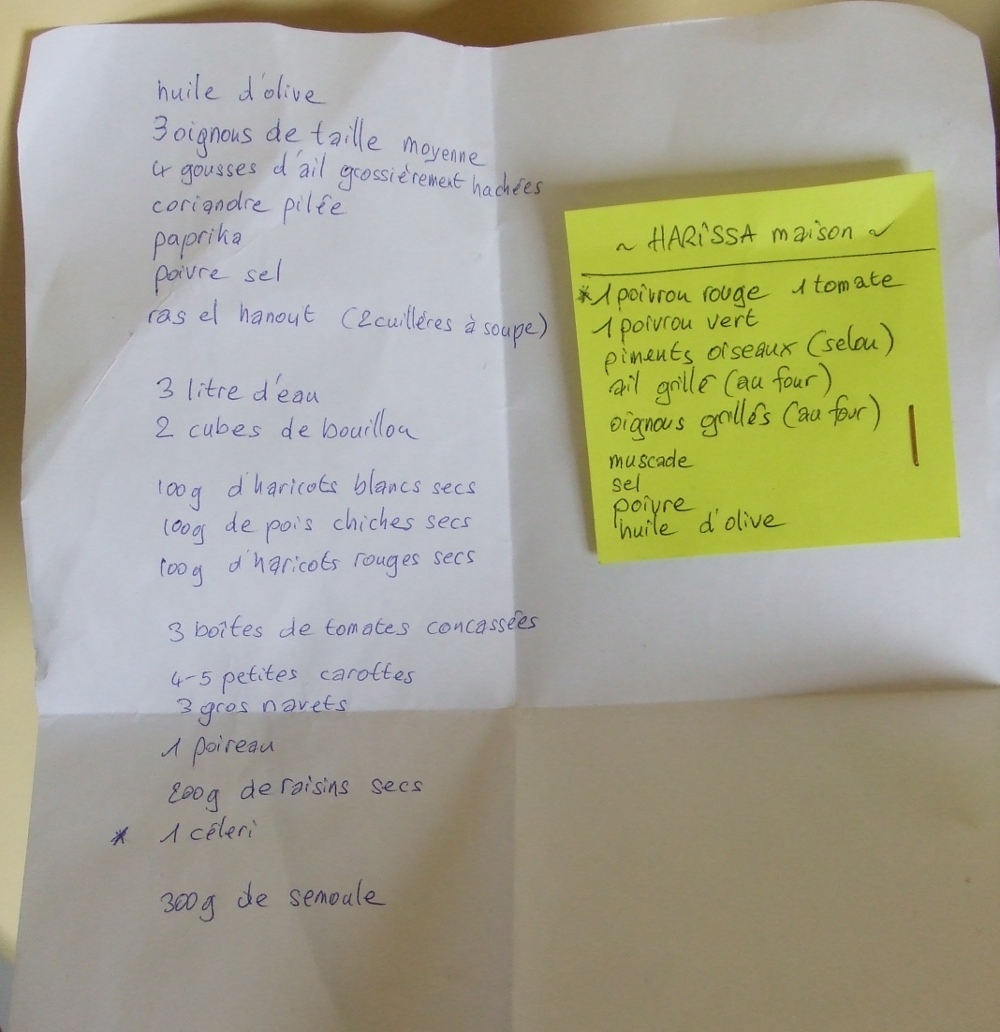 huile d'olive
3 oignons de taille moyenne
4 gousses d'ail grossièrement hachées
coriandre pilée
paprika
poivre sel
ras el hanout (2 cuillères à soupe)
3 litre d'eau
2 cubes de bouillon
100g d'haricots blancs secs
100g de pois chiches secs
100g d'haricots rouges secs
3 boîtes de tomates concassées
4-5 petites carottes
3 gros navets
1 poireau
200g de raisins secs
* 1 céleri
300g de semoule
~ HARISSA maison ~
*1 poivron rouge 1 tomate
1 poivron vert
piments oiseaux (selon)
ail grillé (au four)
oignons grillés (au four)
muscade
sel
poivre
huile d'olive